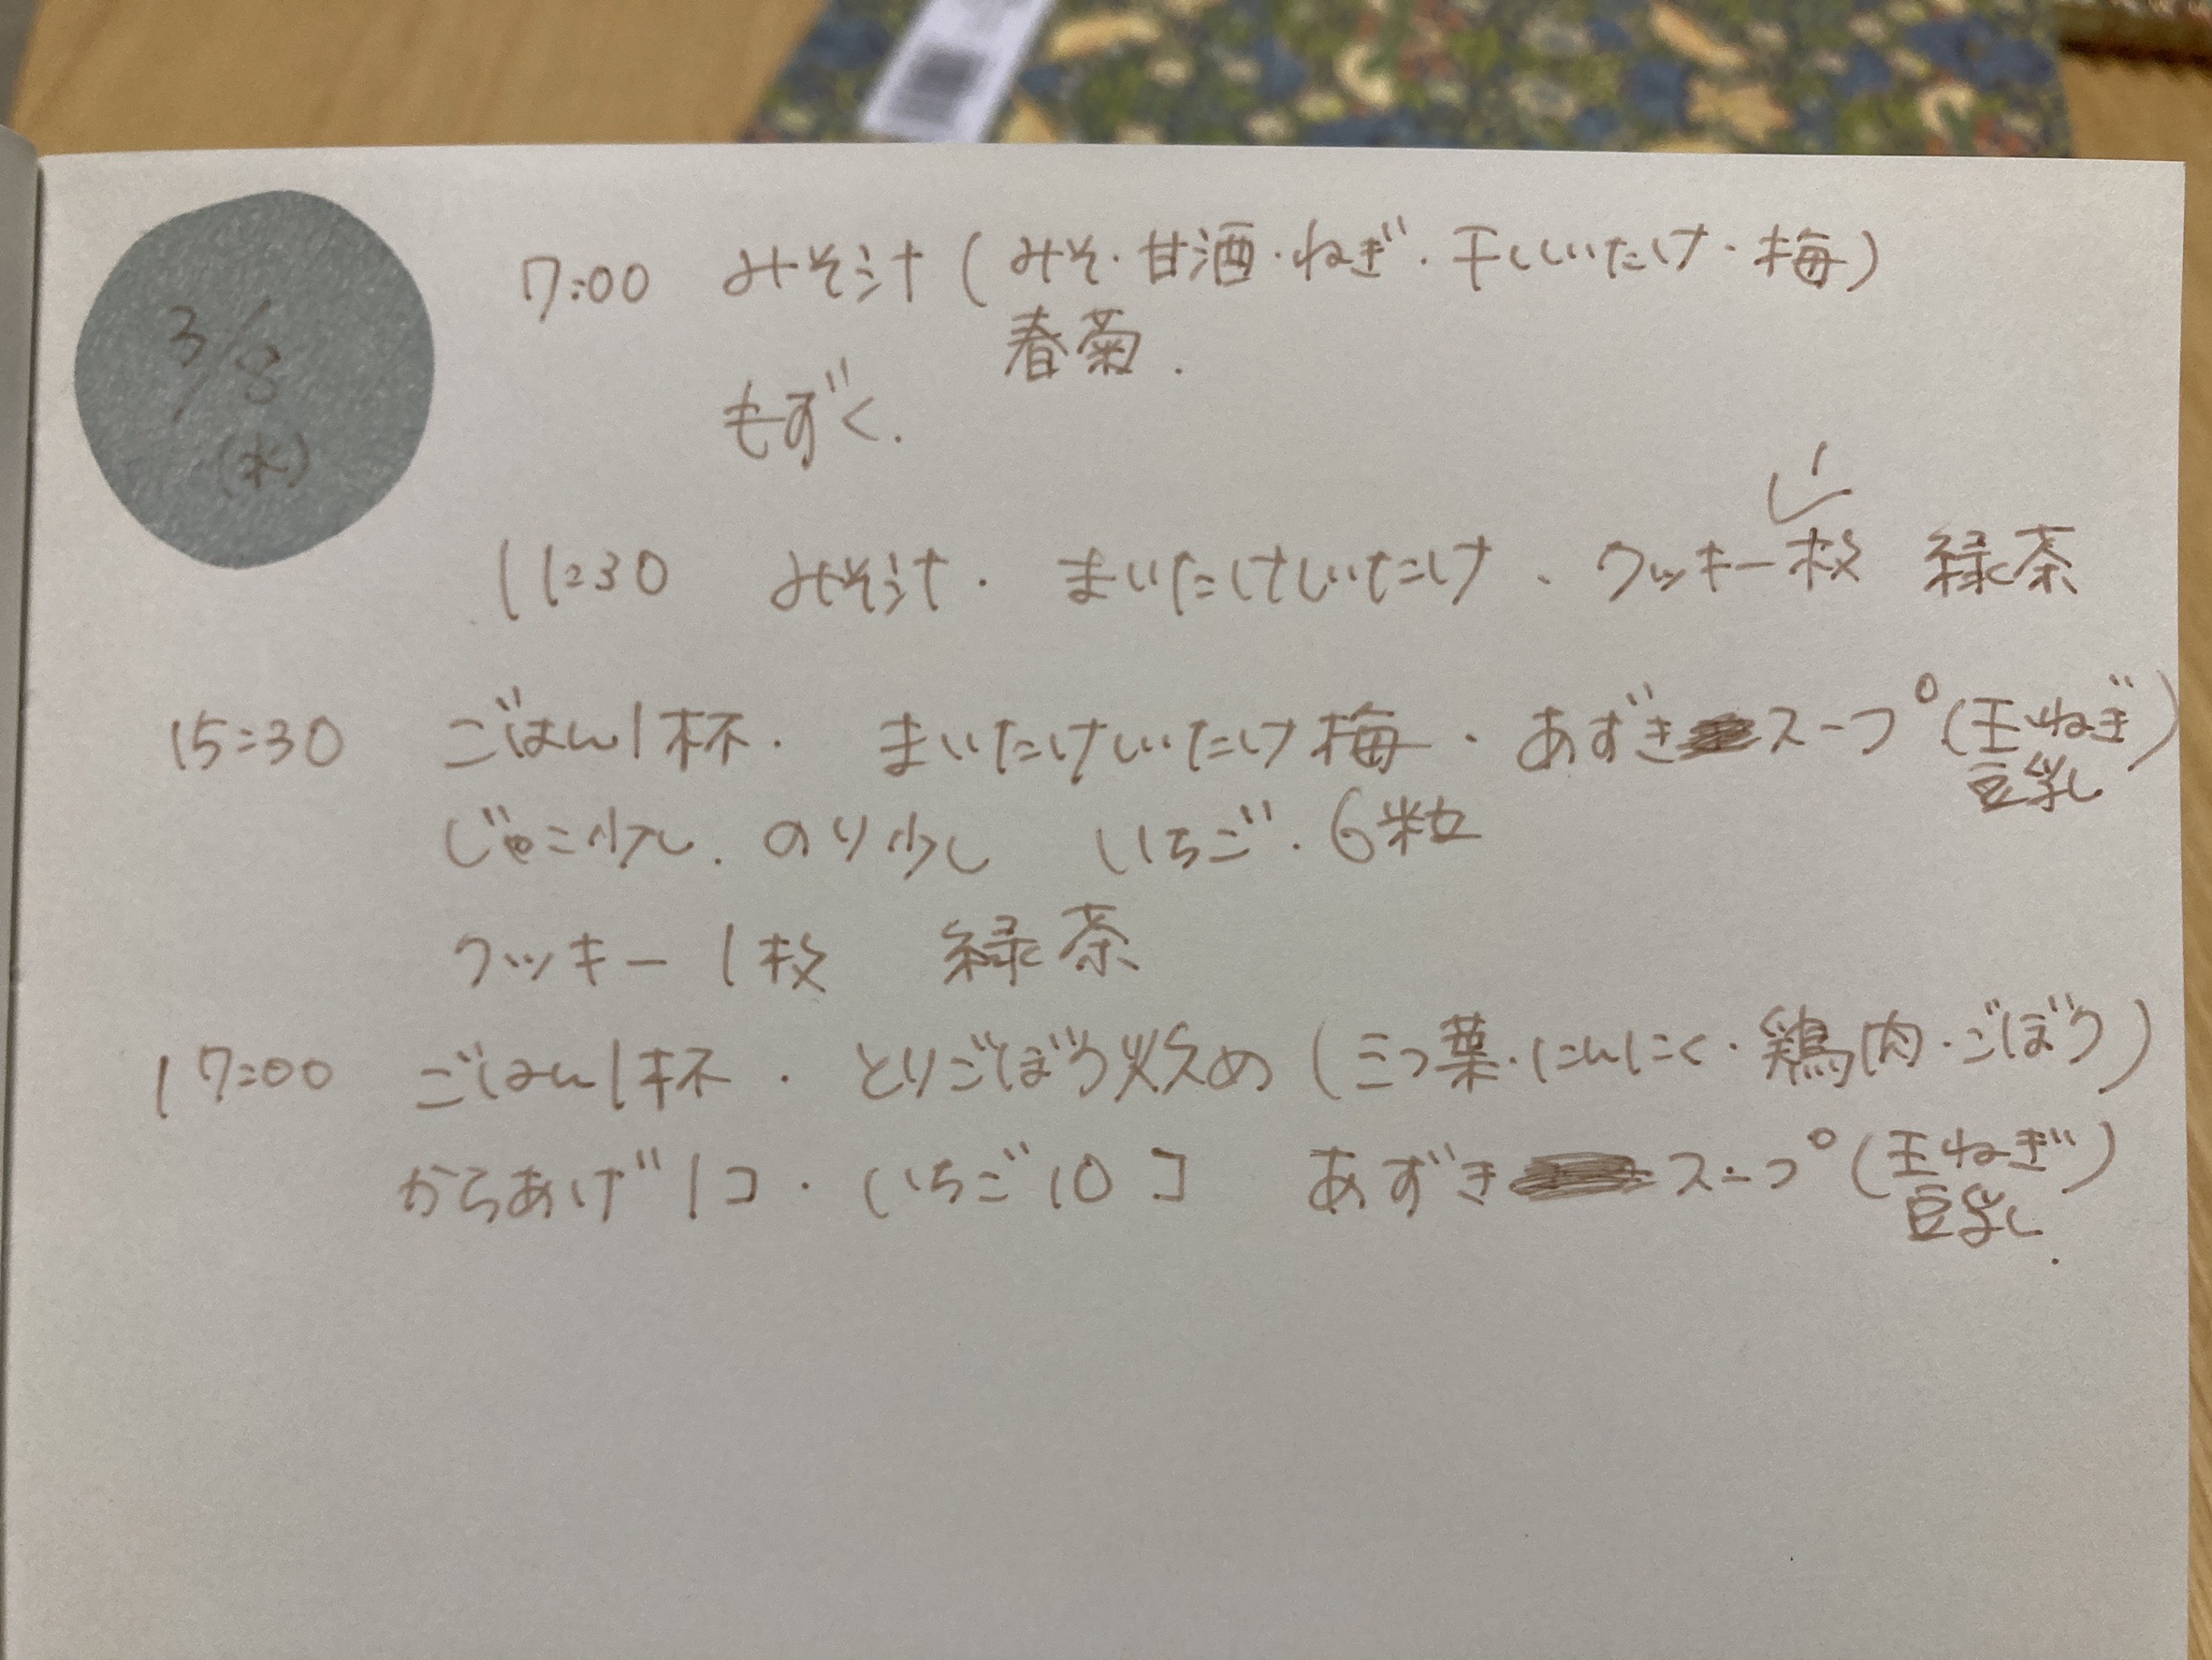 3/8
(水)
7:00 みそ汁(みそ・甘酒・ねぎ・干ししいたけ・梅)
春菊.
もずく.
11:30 みそ汁・まいたけしいたけ、クッキー1枚 緑茶
15:30 ごはん1杯. まいたけしいたけ梅・あずきスープ(玉ねぎ)
豆乳
じゃこ少し. のり少し いちご・6粒
クッキー 1枚 緑茶
17:00 ごはん1杯・とりごぼう炒め(三つ葉・にんにく・鶏肉・ごぼう)
からあげ1コ・いちご10コ あずきスープ(玉ねぎ)
豆乳.